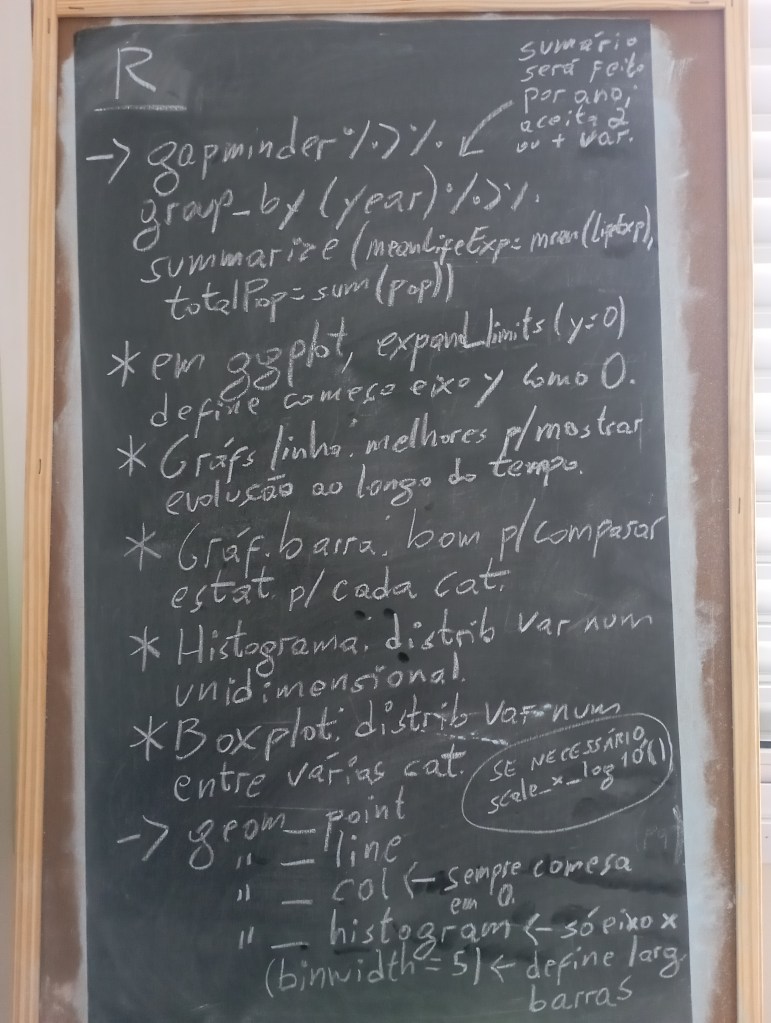 R
sumário
será feito
por ano;
aceita 2
ou + var.
-> gapminder %>%
group_by (year) %>%
summarize (meanLifeExp = mean(lifeExp),
totalPop = sum (pop))
* em ggplot, expand_limits (y=0)
define começo eixo y como 0.
* Gráfs linha: melhores p/ mostrar
evolução ao longo do tempo.
* Gráf. barra: bom p/ comparar
estat. p/ cada cat.
* Histograma: distrib var num
unidimensional.
* Boxplot: distrib var num
entre várias cat.
SE NECESSÁRIO
scale_x_log10()
-> geom_point
" _ line
" _ col <- sempre começa
em 0.
" _ histogram <- só eixo x
(binwidth = 5) <- define larg
barras